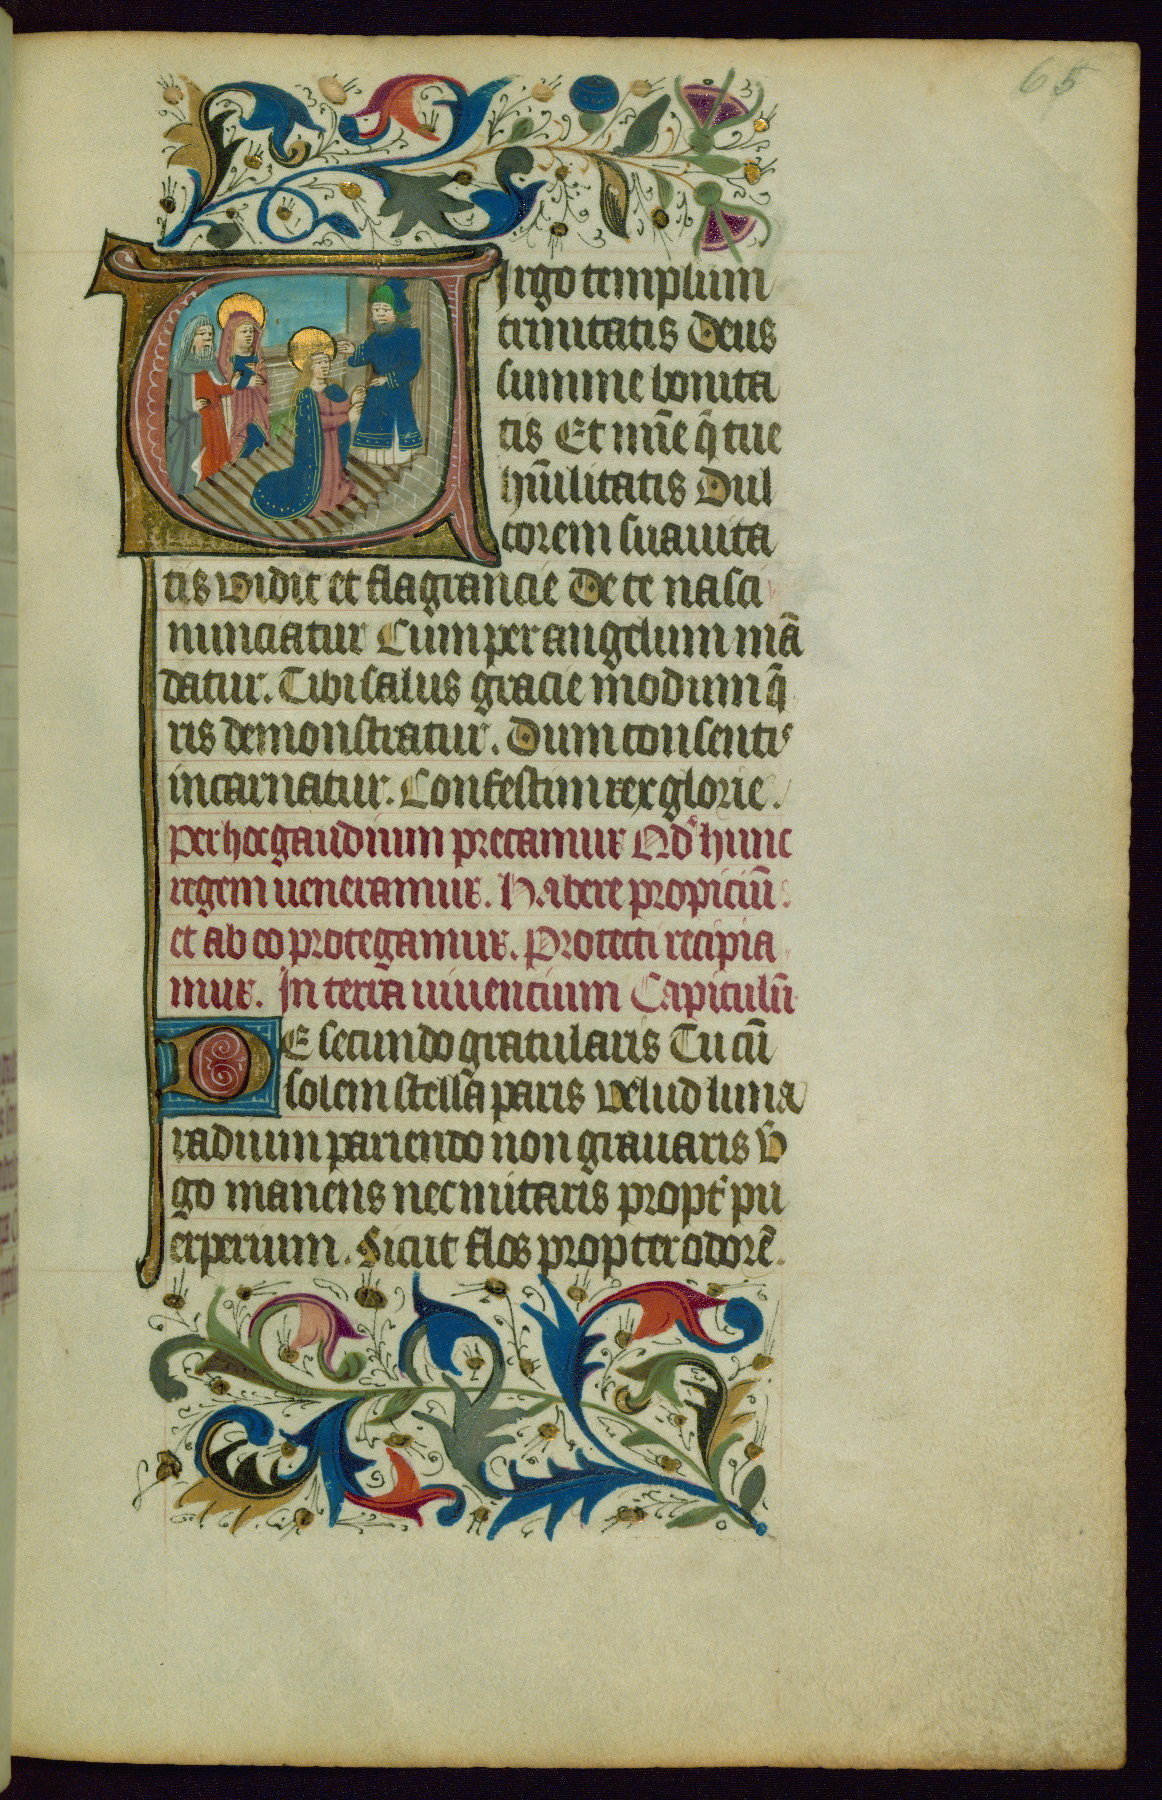 65
Virgo templum
trinitatis Deus
summe bonita
tis Et mīe q̄ tue
hūilitatis Dul
corem suauita
tis vidit et flagrancie De te nasci
nunciatur Cum per angelum mā
datur. Tibi salus gracie modum q̄
ris demonstratur. Dum consentis
incarnatur. Confestim rex glorie.
Per hoc gaudium precamur Nos hunc
regem ueneramur. Habere propiciū
et ab eo protegamur. Protecti recipia
mur. In terra uiuencium Capitulū
De secundo gratularis Tu cū
solem stella paris velud luna
radium pariendo non grauaris v̄
go manens nec mutaris propt' pu
erperium. Sicut flos propter odorē.